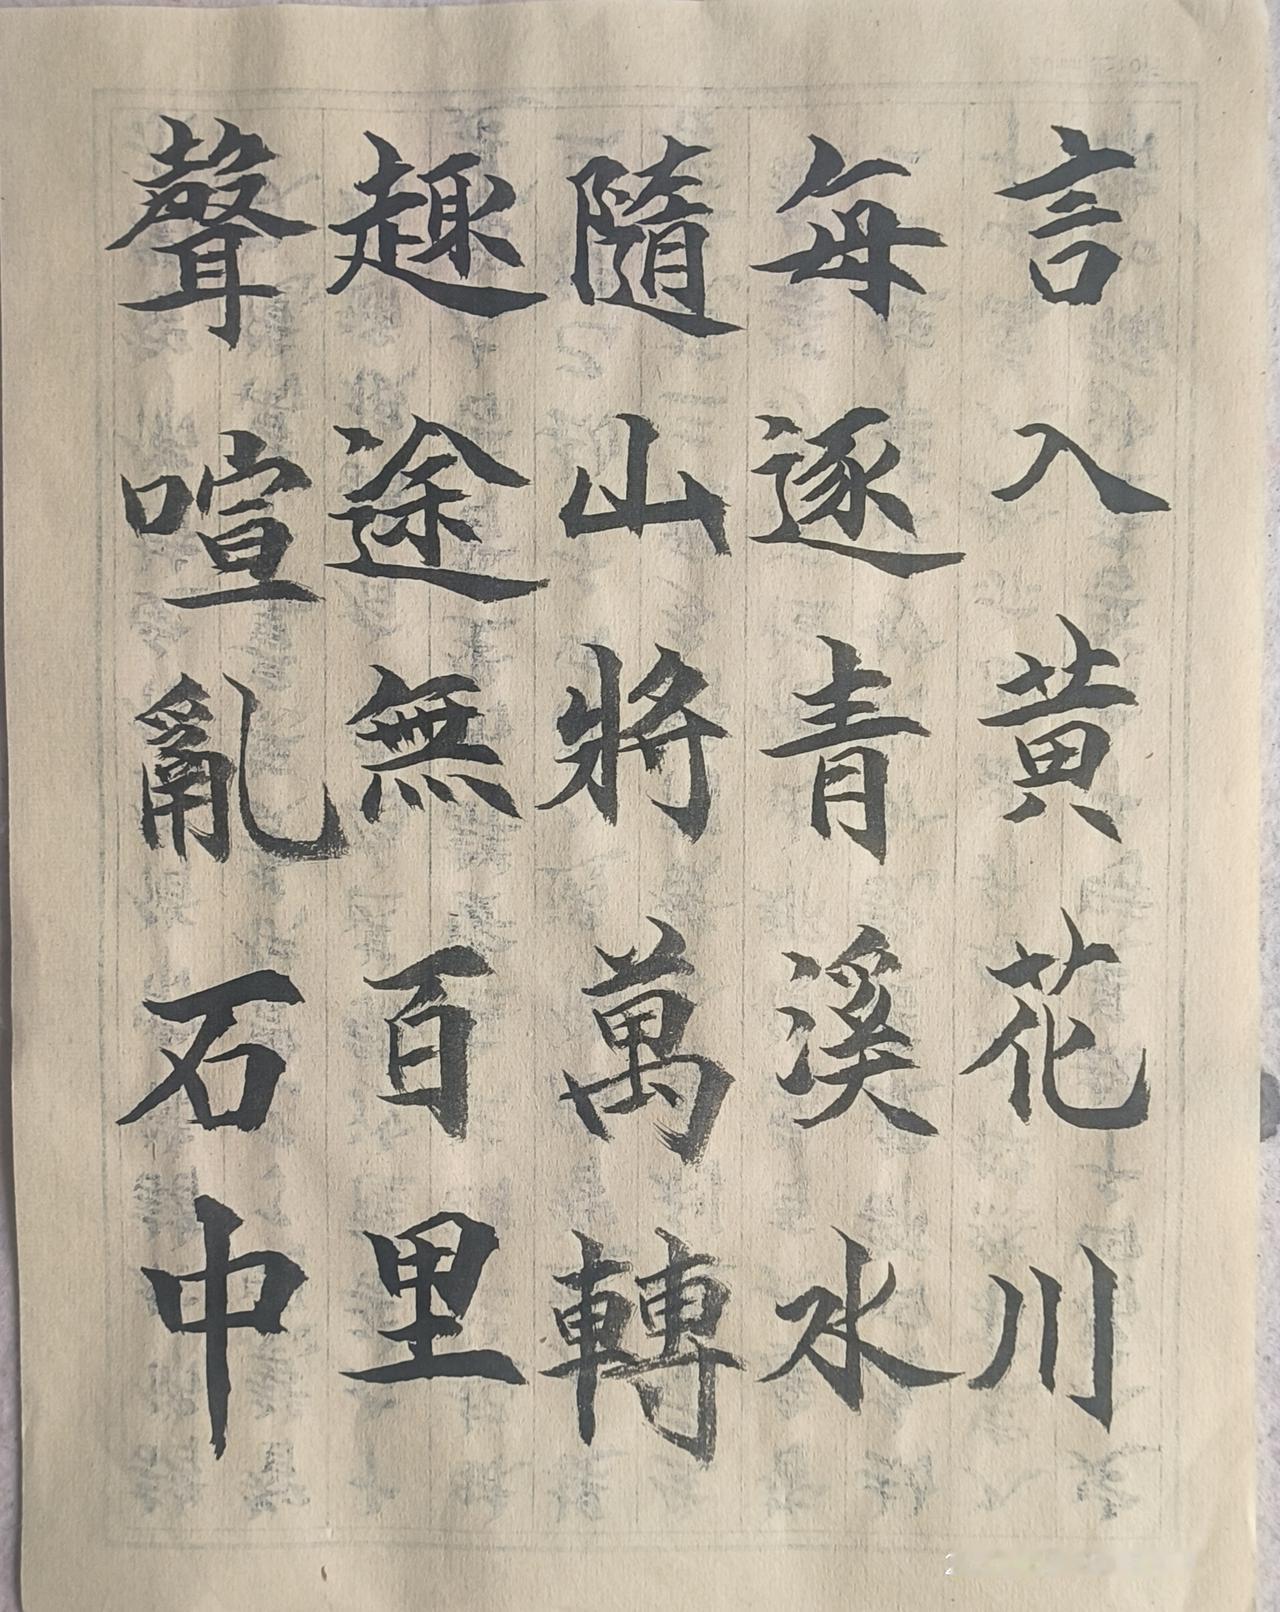 言入黄花川
每逐青溪水
隨山將萬轉
趣途無百里
聲喧亂石中